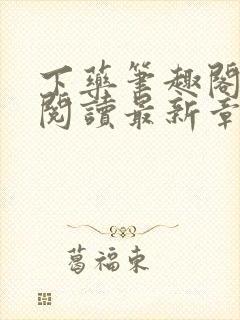 下藥筆趣閣
閱讀最新章
葛福東